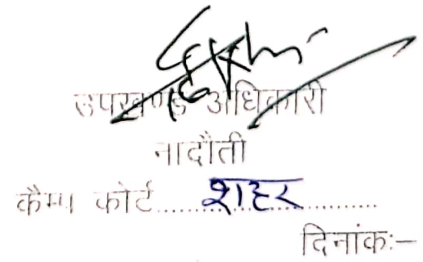 उपखण्ड अधिकारी
नादौती
कैम्प कोर्ट.....शहर.....
दिनांक:–